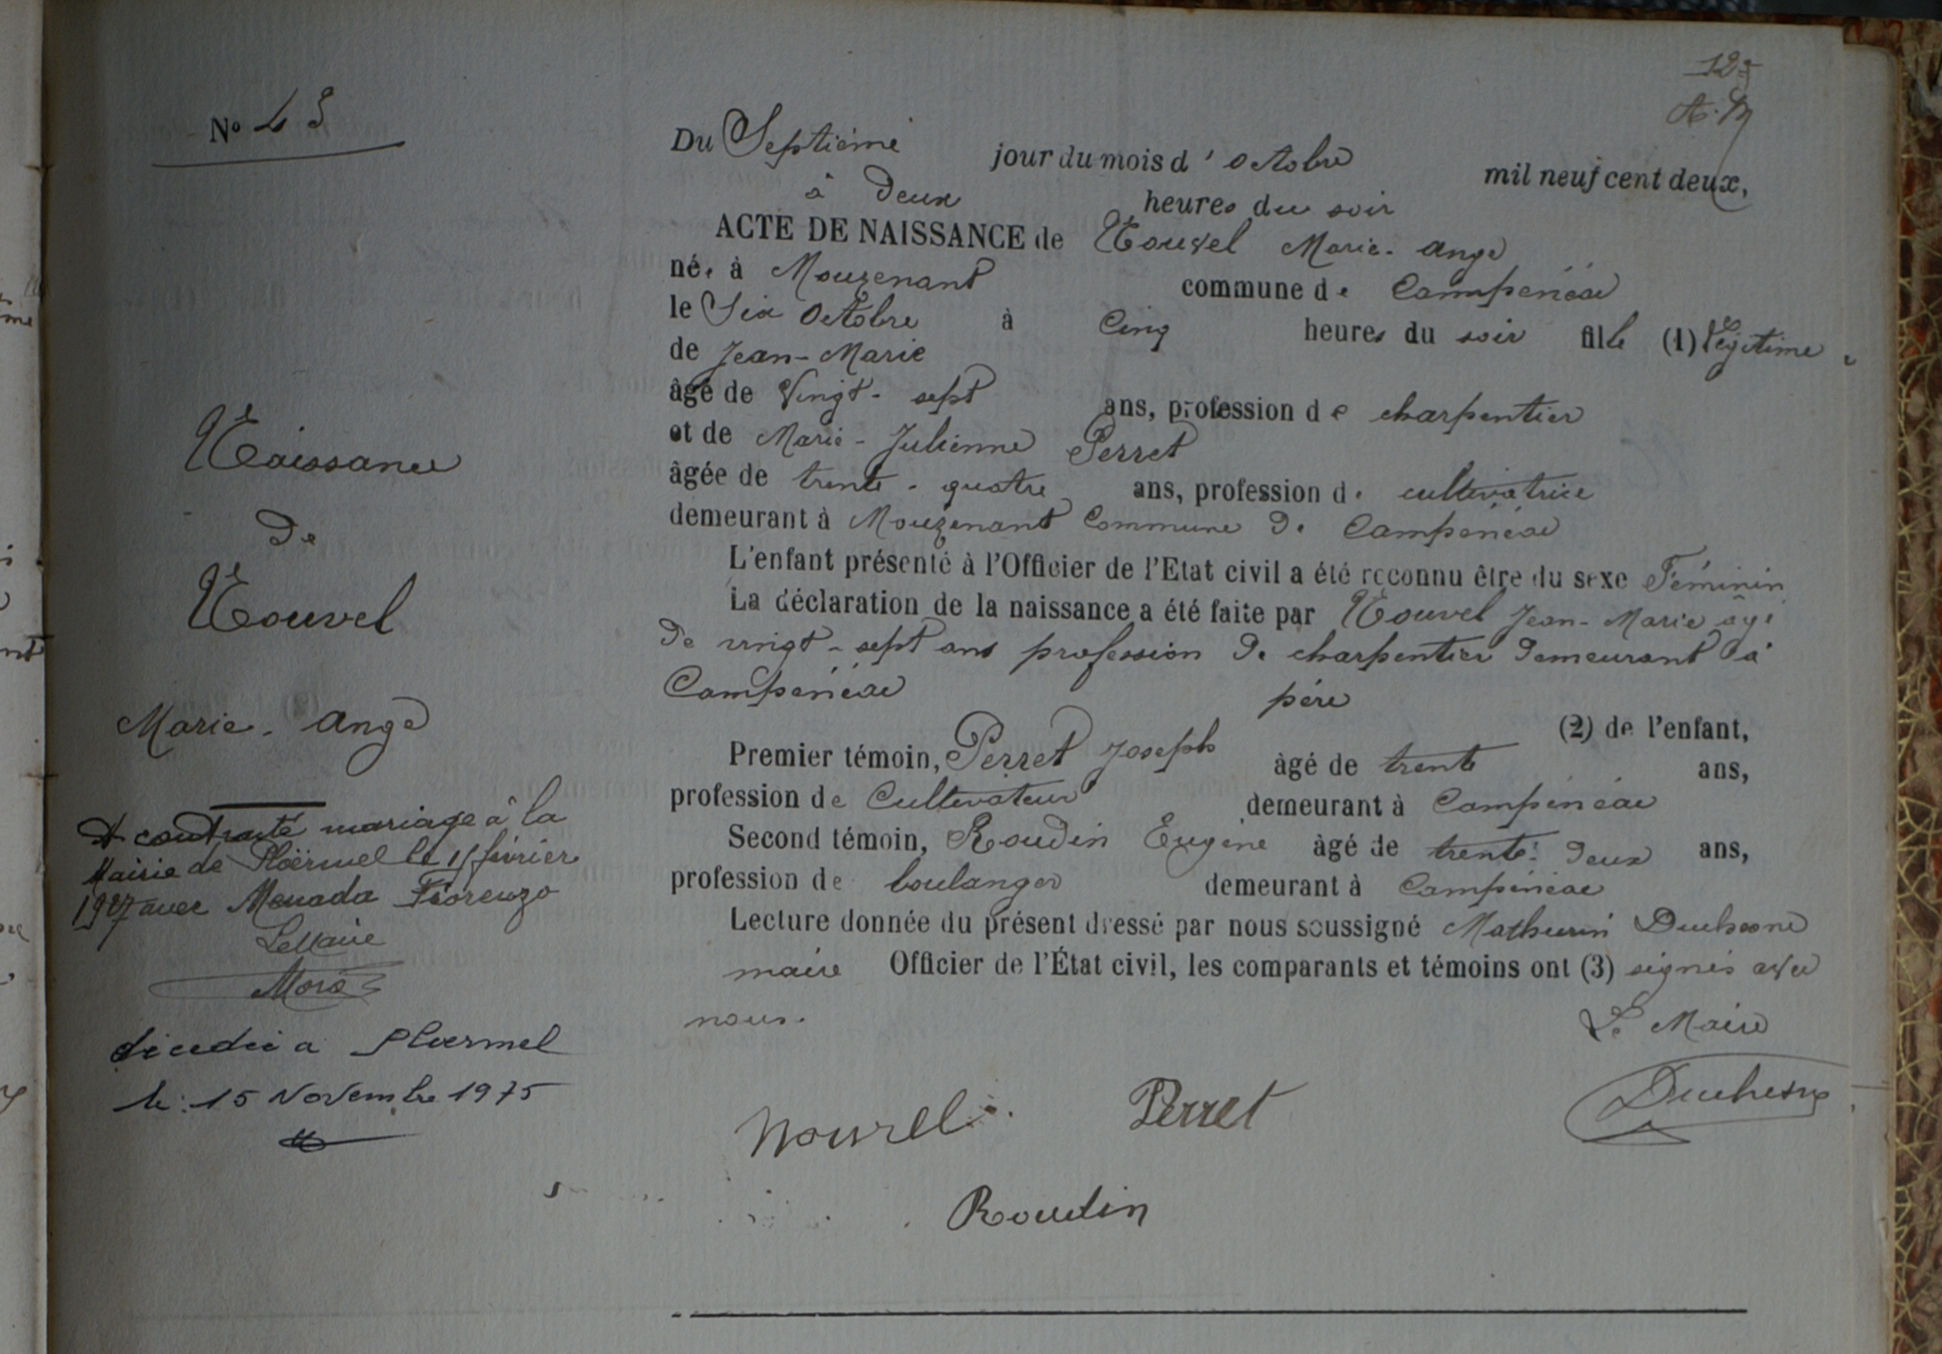 12
A. M
N° 43
Du Septième jour du mois d'Octobre mil neuf cent deux,
à Deux heures du soir
ACTE DE NAISSANCE de Nouvel Marie-Ange
née à Mouzenant commune de Campénéac
le Six Octobre à Cinq heures du soir fille (1) Légitime
de Jean-Marie
âgé de Vingt-sept ans, profession de charpentier
et de Marie-Julienne Perret
âgée de trente-quatre ans, profession de cultivatrice
demeurant à Mouzenant Commune de Campénéac
L'enfant présenté à l'Officier de l'Etat civil a été reconnu être du sexe Féminin
La déclaration de la naissance a été faite par Nouvel Jean-Marie âgé
de vingt-sept ans profession de charpentier demeurant à
Campénéac père
(2) de l'enfant,
Premier témoin, Perret Joseph âgé de trente ans,
profession de Cultivateur demeurant à Campénéac
Second témoin, Roudin Eugène âgé de trente-deux ans,
profession de boulanger demeurant à Campénéac
Lecture donnée du présent dressé par nous soussigné Mathurin Duchesne
maire Officier de l'État civil, les comparants et témoins ont (3) signés avec
nous.
Le Maire
Nouvel Perret Duchesne
Roudin
Naissance
De
Nouvel
Marie-Ange
A contracté mariage à la
Mairie de Ploërmel le février
1927 avec Menada Fiorenzo
Le Maire
décédée a Ploermel
le: 15 Novembre 1975